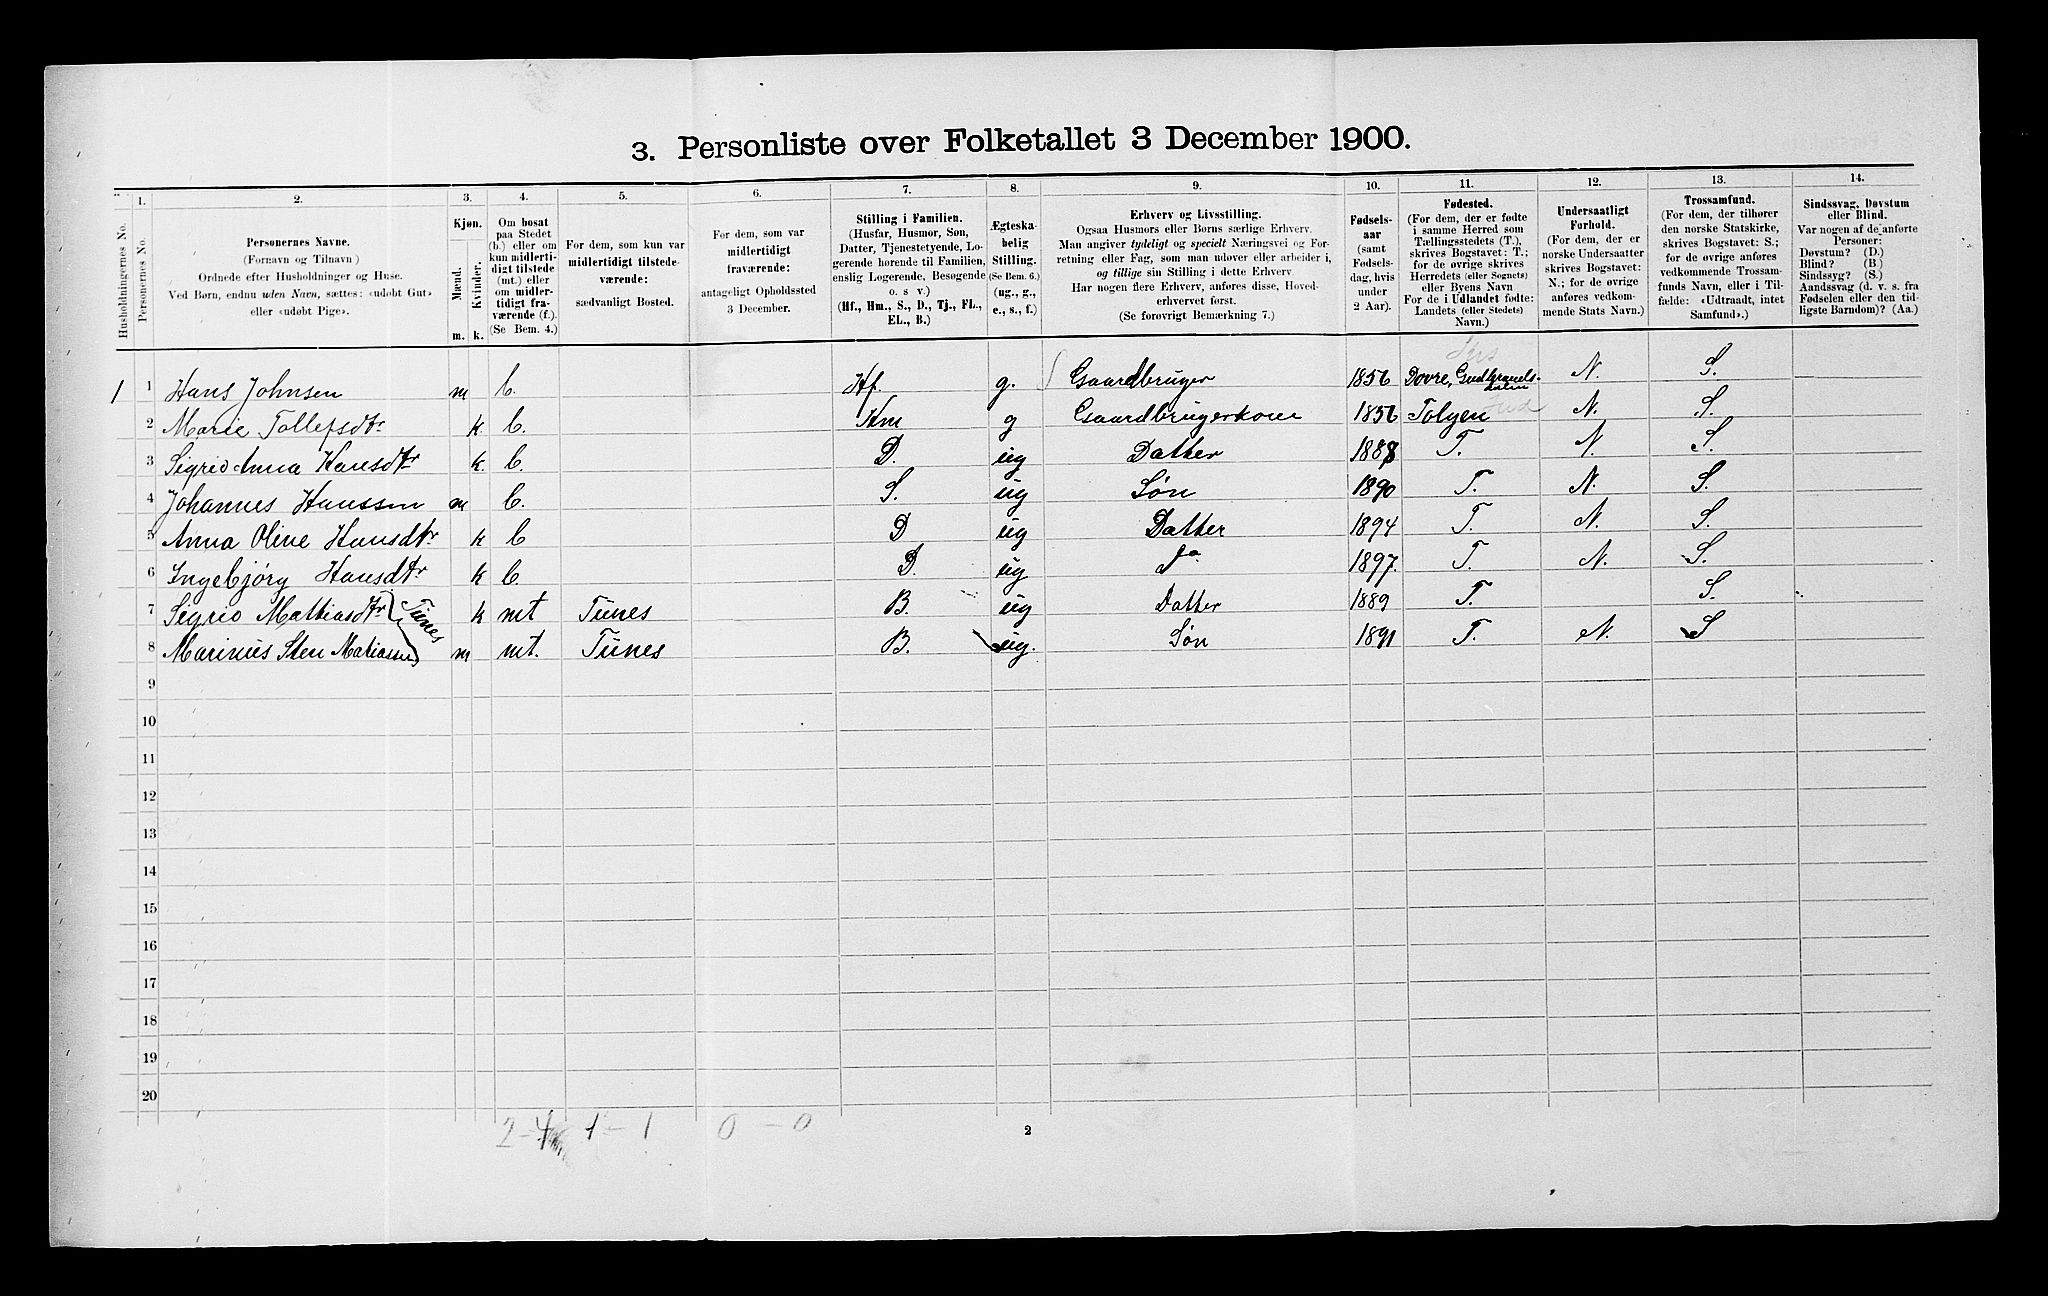 3. Personliste over Folketallet 3 December 1900.
Husholdningernes No.
1. Personernes No.
2. Personernes Navne.
(Fornavn og Tilnavn)
Ordnede efter Husholdninger og Huse.
Ved Børn, endnu uden Navn, sættes: «udøbt Gut»
eller «udøbt Pige».
3. Kjøn.
Mænd. Kvinder.
m. k.
4. Om bosat
paa Stedet
(b.) eller om
kun midlerti-
digt tilstede
(mt.) eller
om midler-
tidigt fra-
værende (f.).
(Se Bem. 4.)
5. For dem, som kun var
midlertidigt tilstede-
værende:
sædvanligt Bosted.
6. For dem, som var
midlertidigt
fraværende:
antageligt Opholdssted
3 December.
7. Stilling i Familien.
(Husfar, Husmor, Søn,
Datter, Tjenestetyende, Lo-
gerende hørende til Familien,
enslig Logerende, Besøgende
o. s v.)
(Hf., Hm., S., D., Tj., FL.,
EL., B.)
8. Ægteska-
belig
Stilling.
(Se Bem. 6.)
(ug., g.,
e., s., f.)
9. Erhverv og Livsstilling.
Ogsaa Husmors eller Børns særlige Erhverv.
Man angiver tydeligt og specielt Næringsvei og For-
retning eller Fag, som man udøver eller arbeider i,
og tillige sin Stilling i dette Erhverv.
Har nogen flere Erhverv, anføres disse, Hoved-
erhvervet først.
(Se forøvrigt Bemærkning 7.)
10. Fødsels-
aar
(samt
Fødsels-
dag, hvis
under
2 Aar).
11. Fødested.
(For dem, der er fødte
i samme Herred som
Tællingsstedets (T.),
skrives Bogstavet: T.;
for de øvrige skrives
Herredets (eller Sognets)
eller Byens Navn
For de i Udlandet fødte:
Landets (eller Stedets)
Navn.)
12. Undersaatligt
Forhold.
(For dem, der er
norske Undersaatter
skrives Bogstavet:
N.; for de øvrige
anføres vedkom-
mende Stats Navn.)
13. Trossamfund.
(For dem, der tilhører
den norske Statskirke,
skrives Bogstavet: S.;
for de øvrige anføres
vedkommende Trossam-
funds Navn, eller i Til-
fælde: «Udtraadt, intet
Samfund».)
14. Sindssvag, Døvstum
eller Blind.
Var nogen af de anførte
Personer:
Døvstum? (D.)
Blind? (B.)
Sindssyg? (S.)
Aandssvag (d. v. s. fra
Fødselen eller den tid-
ligste Barndom)? (Aa.)
1 1 Hans Johnsen m b. Hf. g. Gaardbruger 1856 Dovre, Gudbrands-
dalen N. S.
2 Marie Tollefsdtr k b. Hm g Gaardbrugerkone 1856 Tolgen Hed N. S.
3 Sigrid Anna Hansdtr k. b. D. ug Datter 1888 T. N. S.
4 Johannes Hanssen m b. S. ug Søn 1890 T. N. S.
5 Anna Oline Hansdtr k b D ug Datter 1894 T. N. S.
6 Ingebjørg Hansdtr k b. D. ug do 1897. T. N. S.
7 Sigrid Mathiasdtr Tünes k mt Tünes B. ug Datter 1889 T. S.
8 Marinus Sten Matiasen m mt. Tünes B. ug. Søn 1891 T. N. S
9
10
11
12
13
14
15
16
17
18
19
20
2-4 1-1 0-0
2